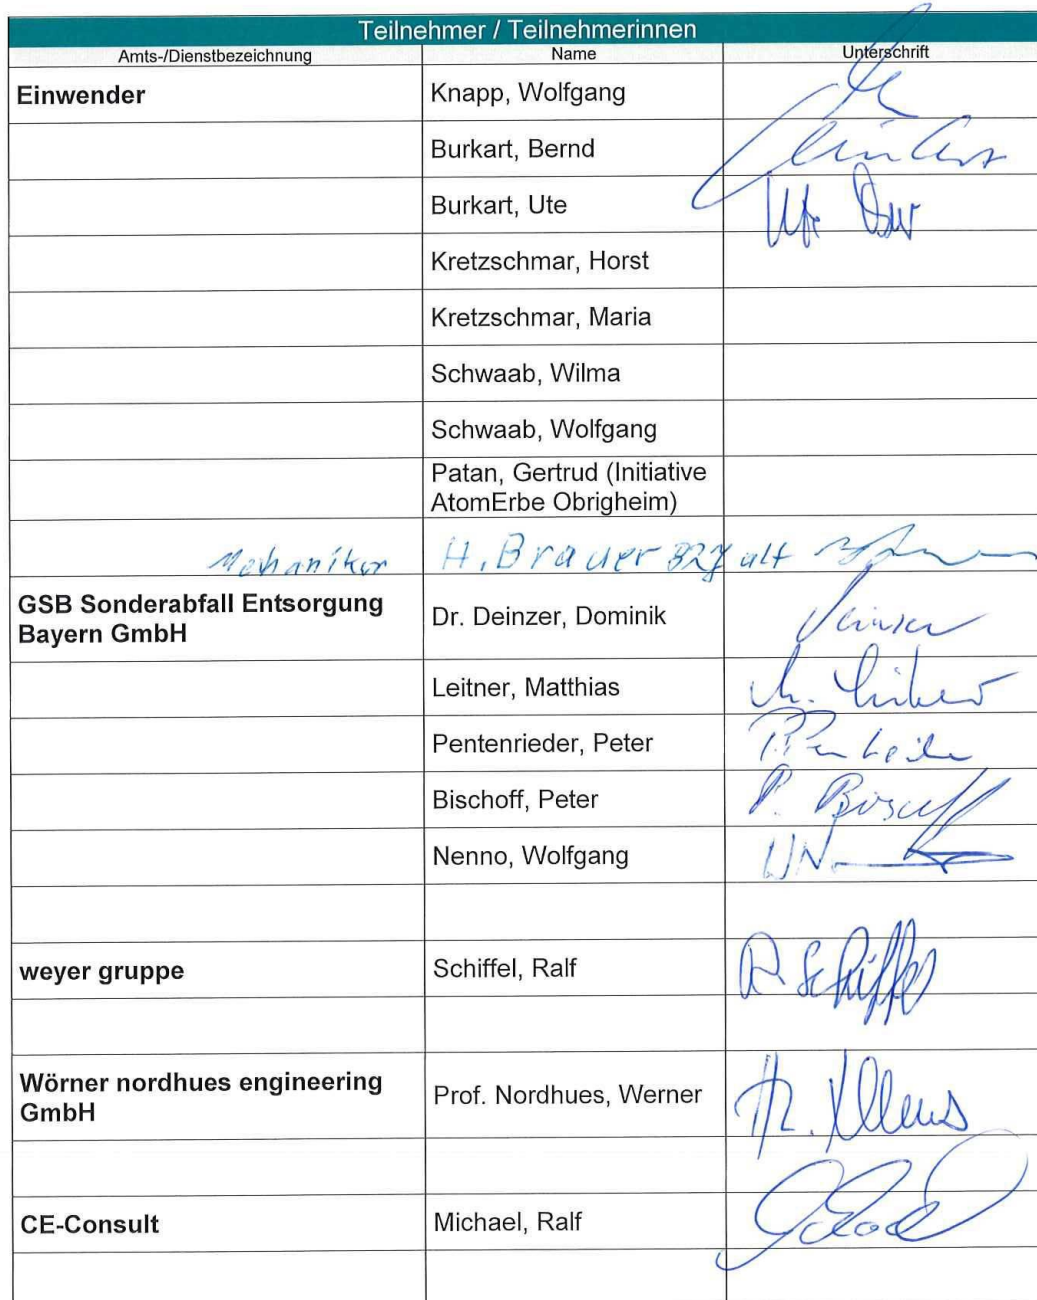 Teilnehmer / Teilnehmerinnen
Amts-/Dienstbezeichnung Name Unterschrift
Einwender Knapp, Wolfgang
Burkart, Bernd
Burkart, Ute Ute
Kretzschmar, Horst
Kretzschmar, Maria
Schwaab, Wilma
Schwaab, Wolfgang
Patan, Gertrud (Initiative
AtomErbe Obrigheim)
Mechaniker H. Brauer 82J alt
GSB Sonderabfall Entsorgung
Bayern GmbH Dr. Deinzer, Dominik
Leitner, Matthias
Pentenrieder, Peter
Bischoff, Peter P. Bischoff
Nenno, Wolfgang
weyer gruppe Schiffel, Ralf R. Schiffel
Wörner nordhues engineering
GmbH Prof. Nordhues, Werner
CE-Consult Michael, Ralf